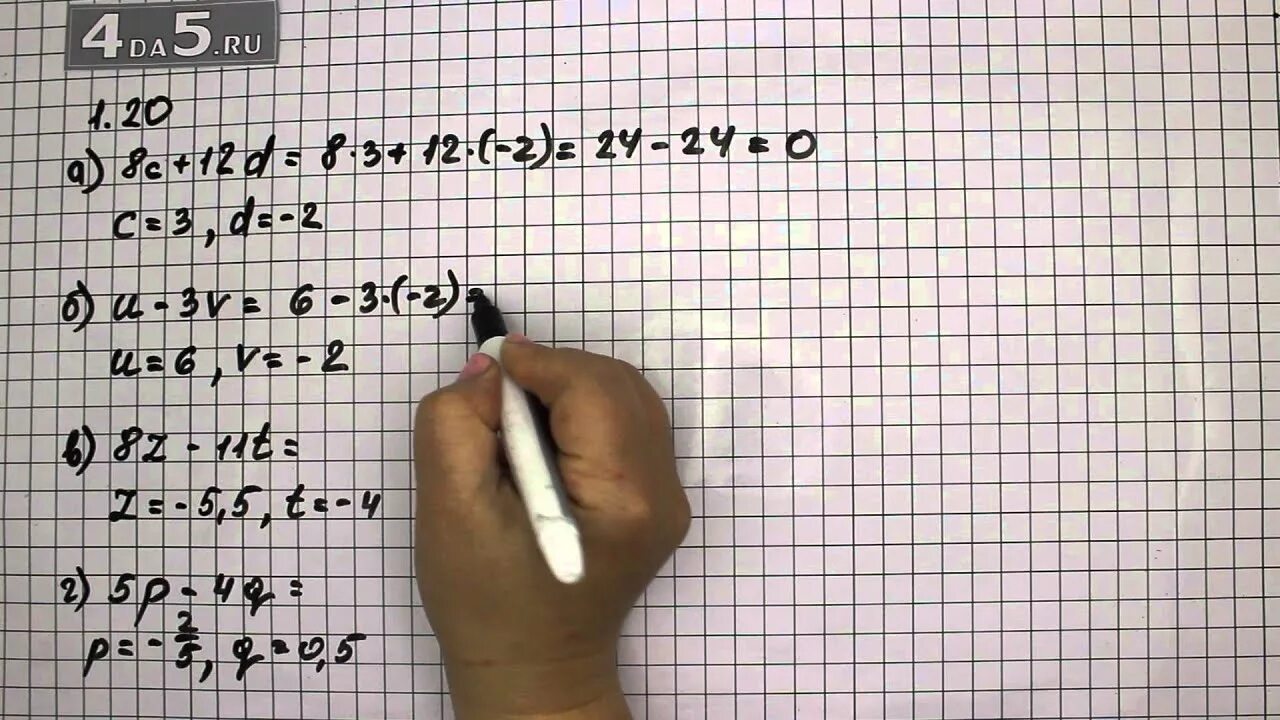 4DA5.RU
1.20
а) 8c + 12d = 8·3 + 12·(-2) = 24 - 24 = 0
c = 3, d = -2
б) u - 3v = 6 - 3·(-2) =
u = 6, v = -2
в) 8z - 11t =
z = -5,5, t = -4
г) 5p - 4q =
p = -2/5, q = 0,5